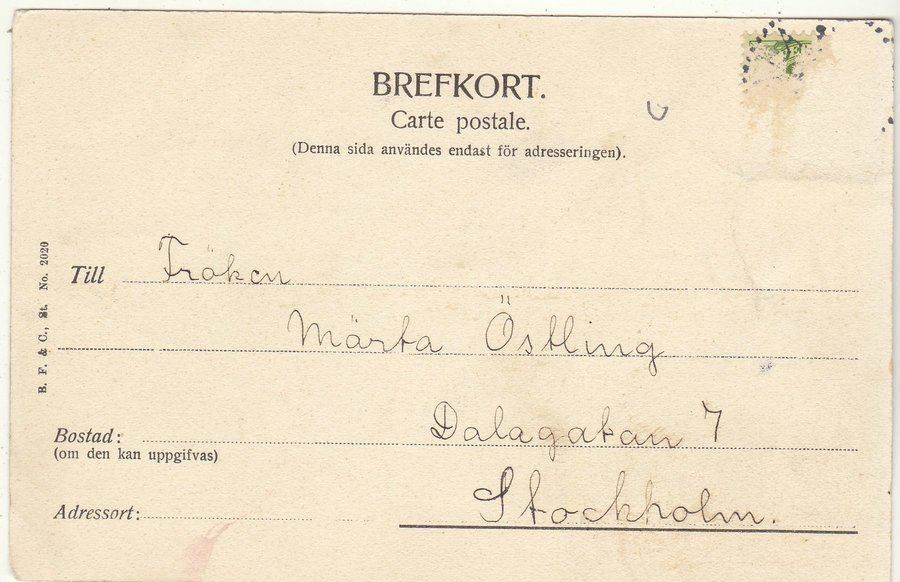 BREFKORT.
Carte postale.
(Denna sida användes endast för adresseringen).
Till Fröken
Märta Östling
Bostad: Dalagatan 7
(om den kan uppgifvas)
Adressort: Stockholm.
B. F. & C., St. No. 2020